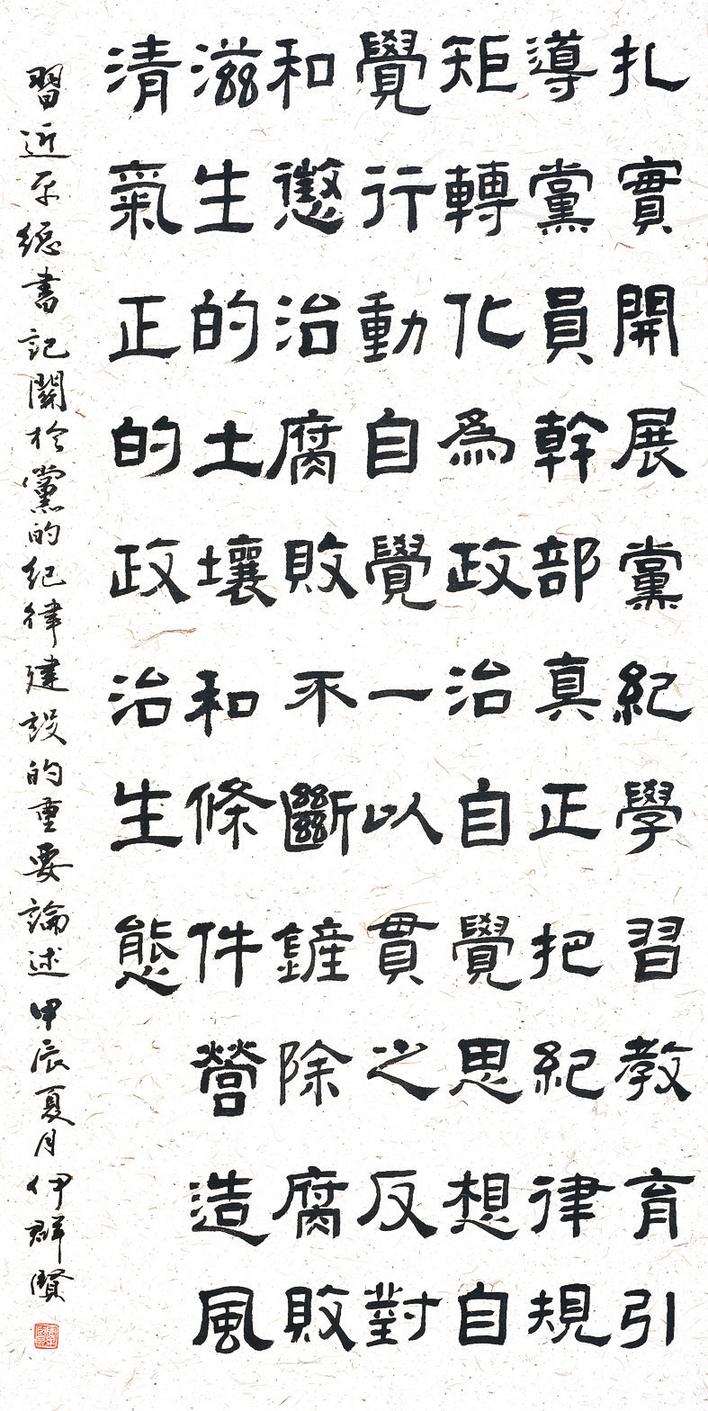 扎實開展黨紀學習教育引
導黨員幹部真正把紀律規
矩轉化為政治自覺思想自
覺行動自覺一以貫之反對
和懲治腐敗不斷鏟除腐敗
滋生的土壤和條件營造風
清氣正的政治生態
習近平總書記關於黨的紀律建設的重要論述甲辰夏月伊群賢